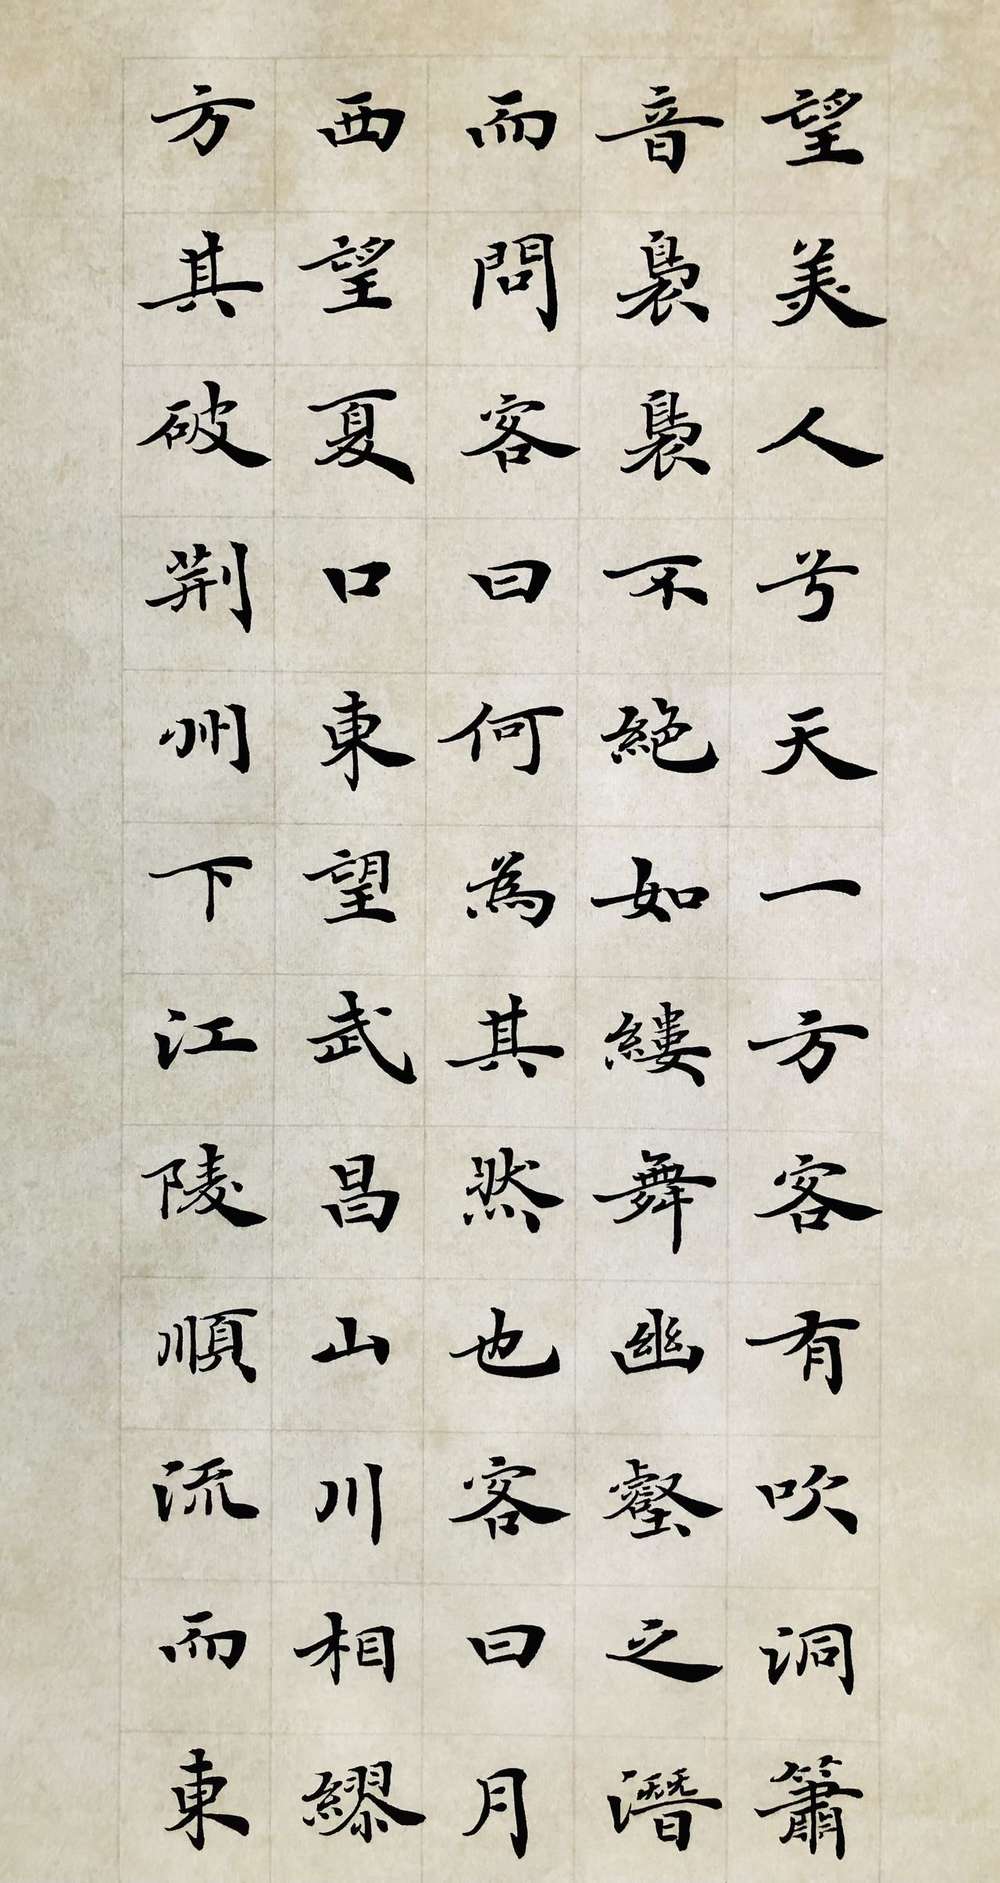 望美人兮天一方客有吹洞簫
音裊裊不絕如縷舞幽壑之潛
而問客曰何為其然也客曰月
西望夏口東望武昌山川相繆
方其破荊州下江陵順流而東